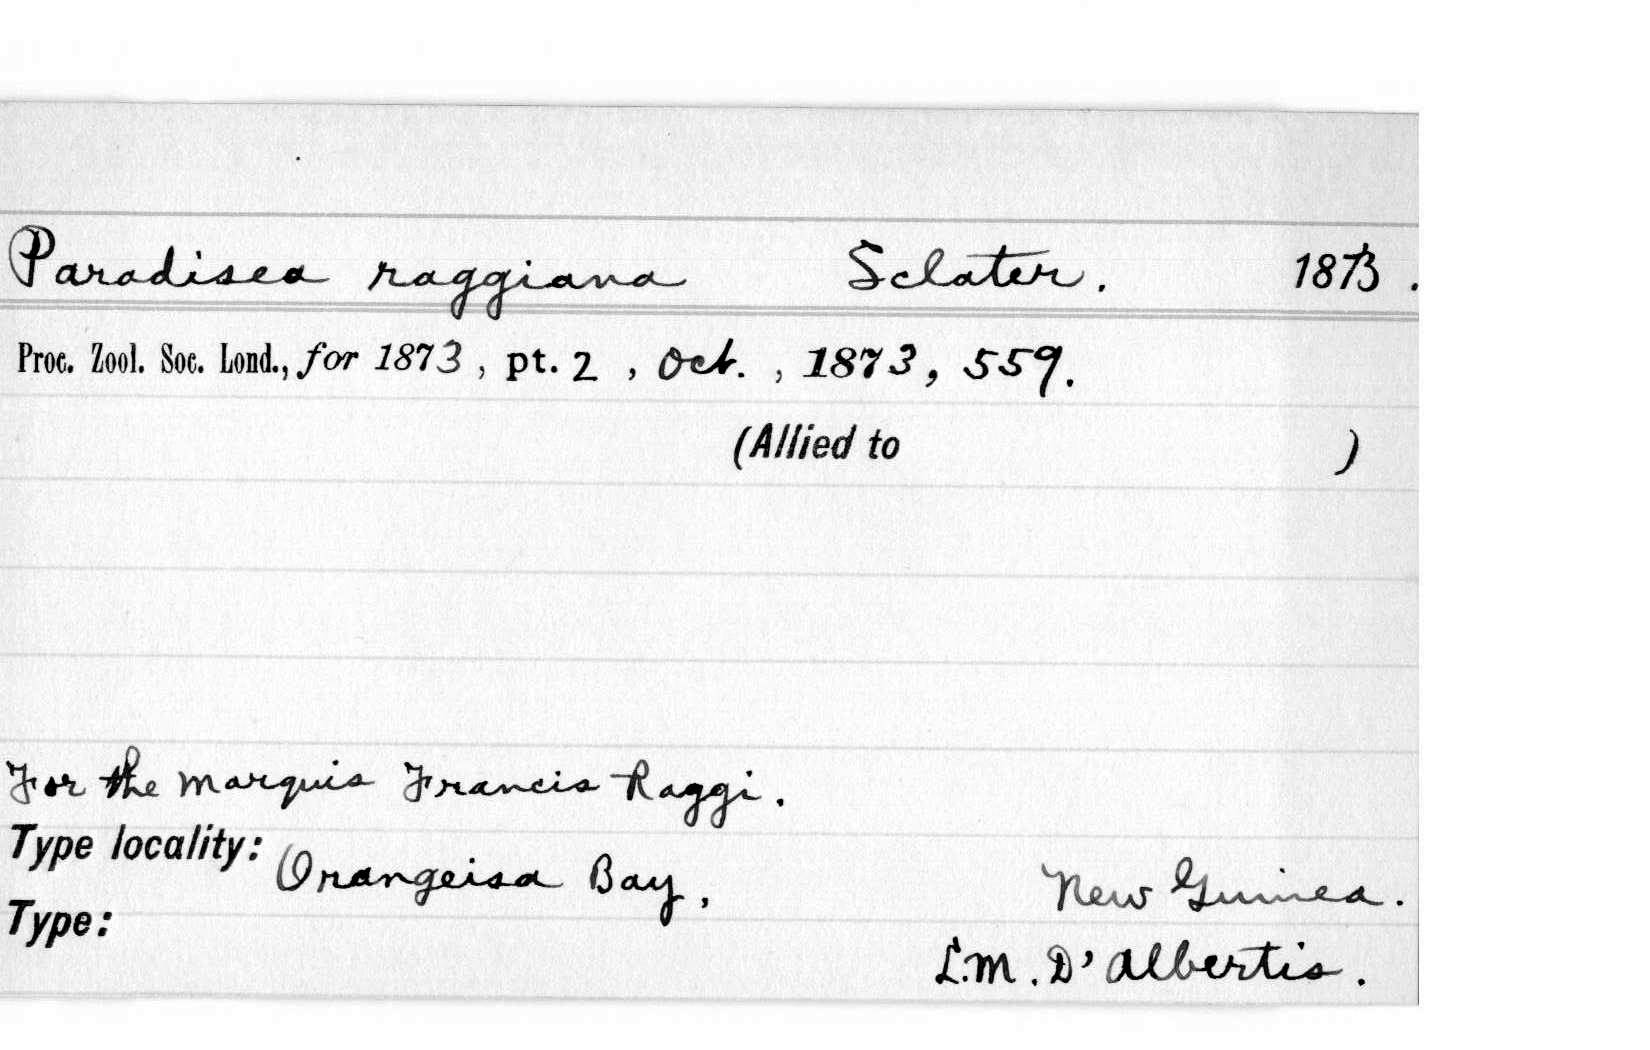 Paradisea raggiana Sclater. 1873.
Proc. Zool. Soc. Lond., for 1873, pt. 2, Oct., 1873, 559.
(Allied to )
For the Marquis Francis Raggi.
Type locality: Orangeisa Bay, New Guinea.
Type: L.M. D'Albertis.